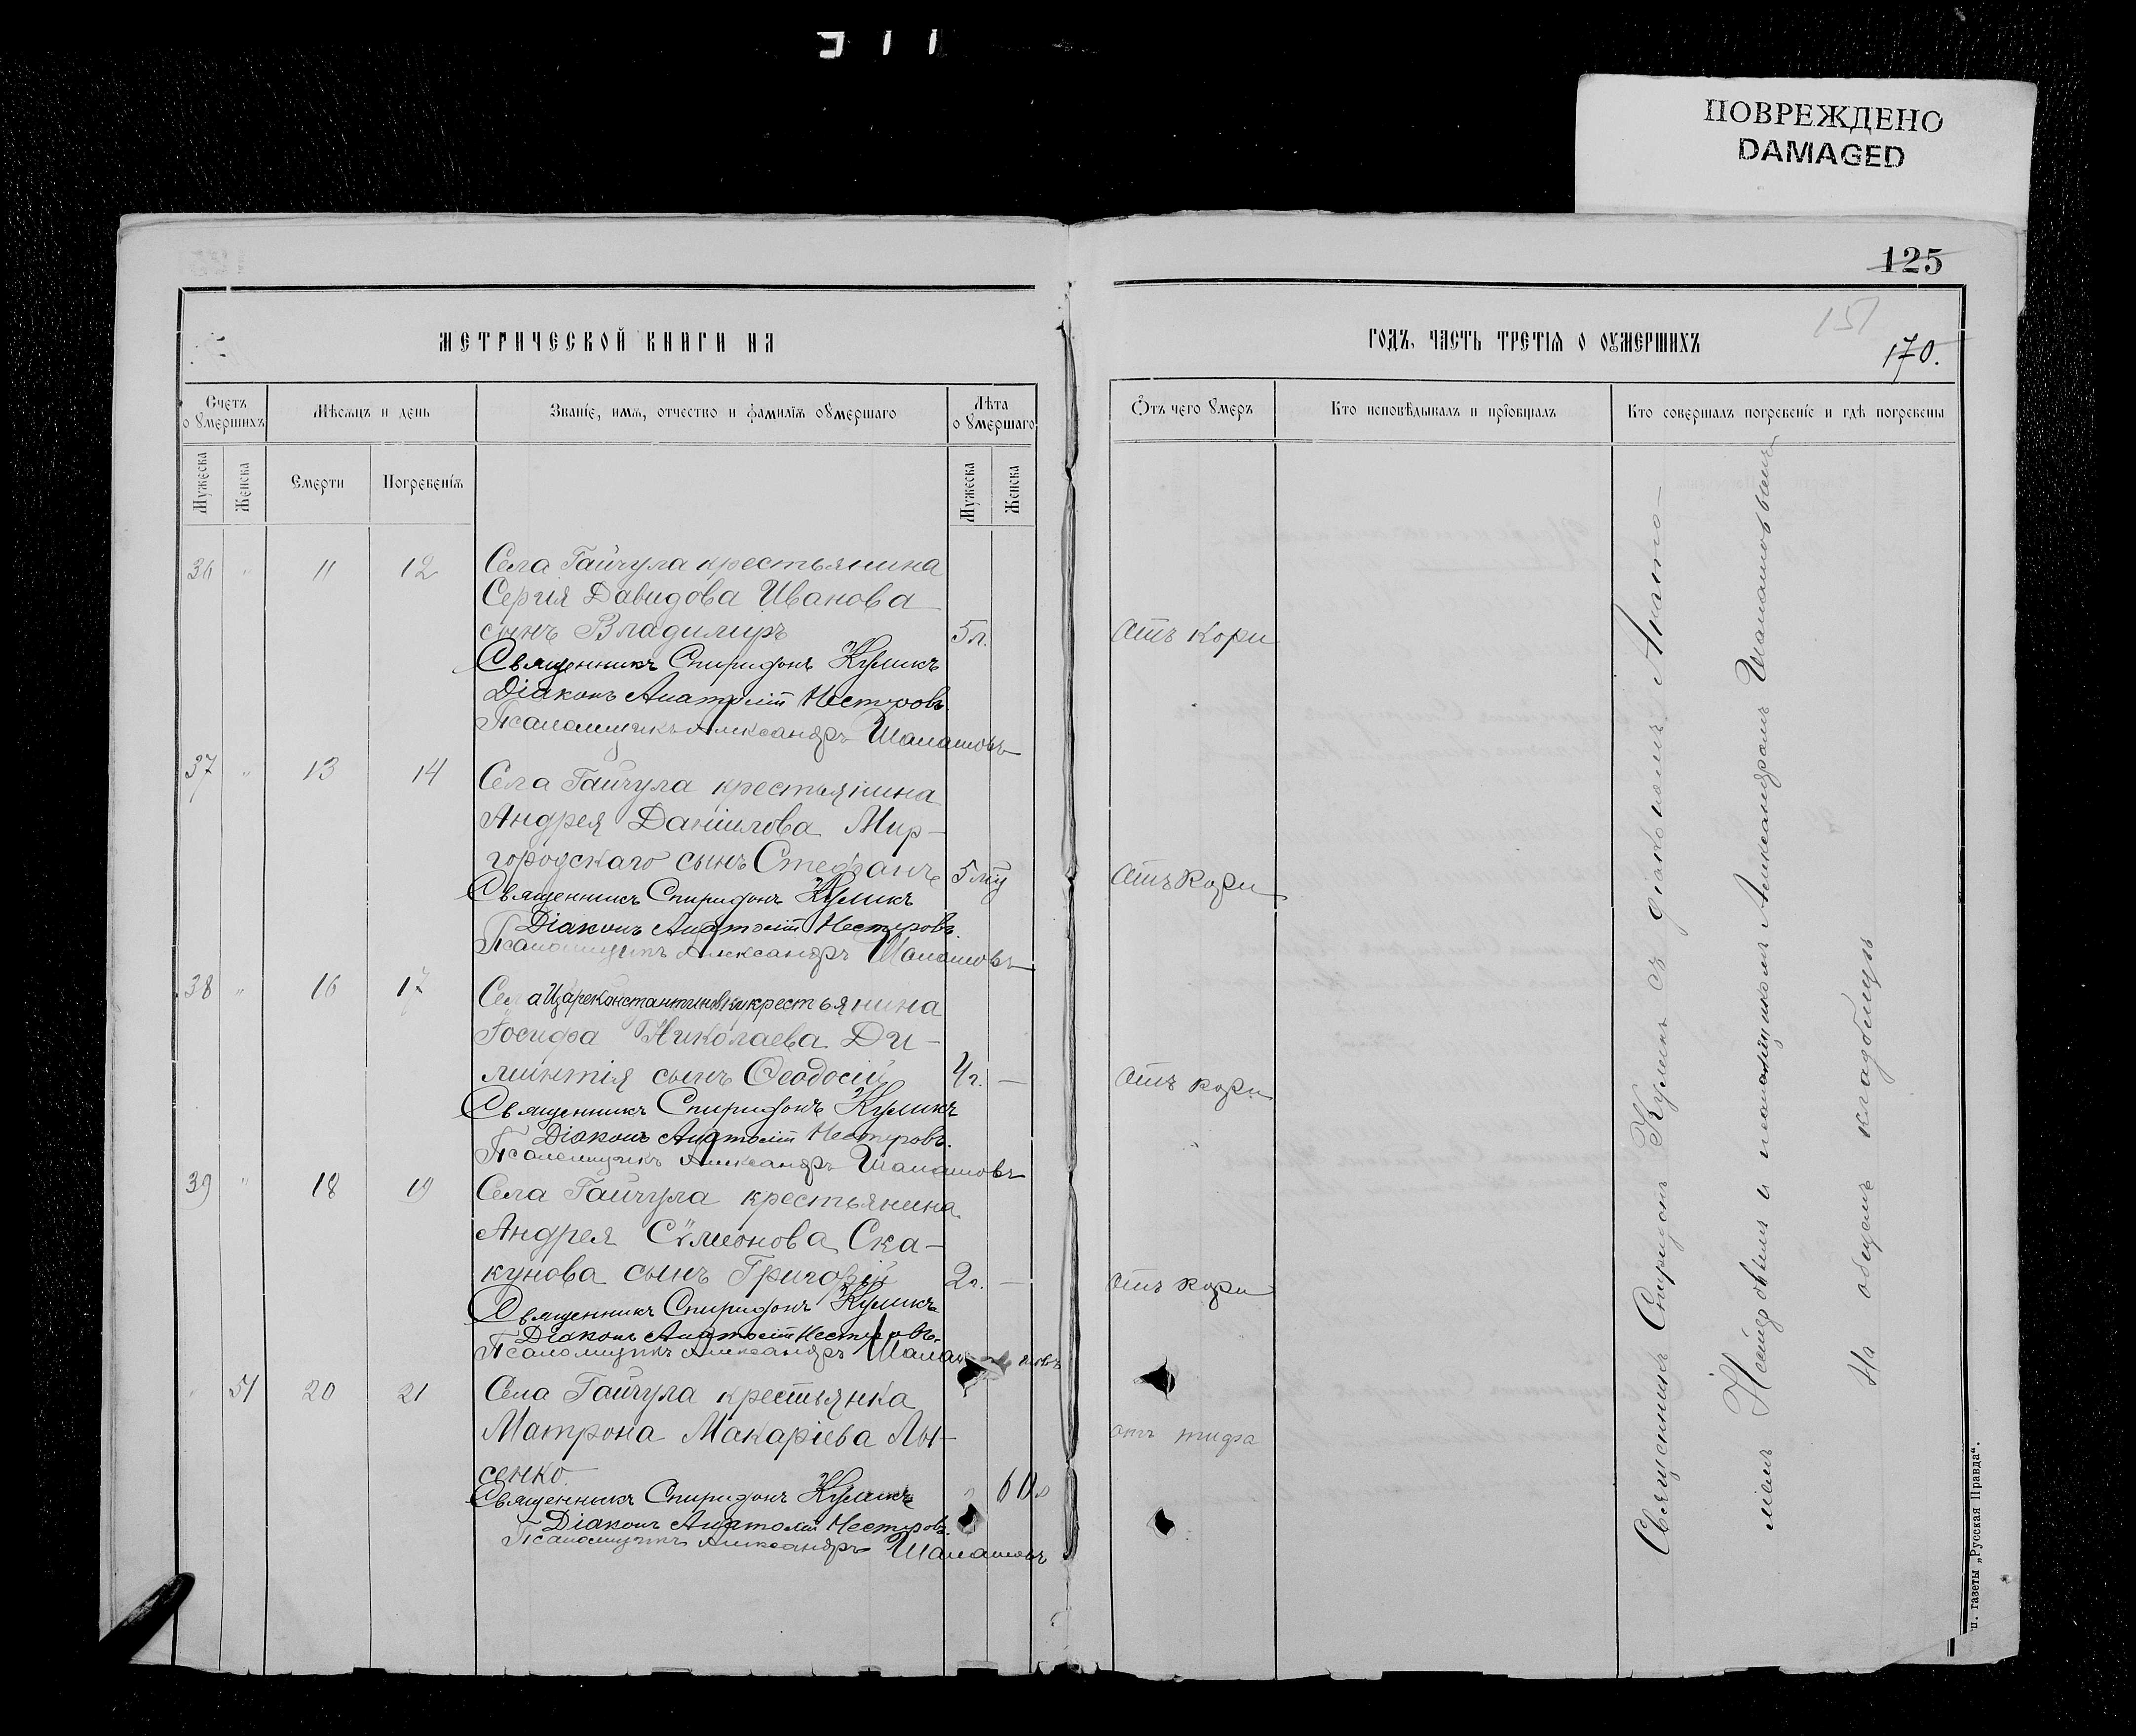 ПОВРЕЖДЕНО
DAMAGED
125
151
170.
МЕТРИЧЕСКОЙ КНИГИ НА
ГОДЪ, ЧАСТЬ ТРЕТІѦ О ОУМЕРШИХЪ
Счетъ
оумершихъ
Мѣсяцъ и день
Званіе, имѧ, отчество и фамиліѧ оумершаго
Лѣта
оумершаго
Отъ чего умеръ
Кто исповѣдывалъ и пріобщалъ
Кто совершалъ погребеніе и гдѣ погребены
Мужеска
Женска
Смерти
Погребеніѧ
Мужеска
Женска
36 " 11 12 Села Гайчула крестьянина
Сергія Давидова Иванова
сынъ Владимиръ 5 л. Отъ кори
Священникъ Спиридонъ Куликъ
Діаконъ Анатолій Нестеровъ.
Псаломщикъ Александръ Шаламовъ
37 " 13 14 Села Гайчула крестьянина
Андрея Даніилова Мир-
городскаго сынъ Стефанъ 5 Отъ кори
Священникъ Спиридонъ Куликъ
Діаконъ Анатолій Нестеровъ.
Псаломщикъ Александръ Шаламовъ
38 " 16 17 Села Цареконстантиновки крестьянина
Іосифа Николаева Ди-
минтія сынъ Ѳеодосій 4 г. — Отъ кори
Священникъ Спиридонъ Куликъ
Діаконъ Анатолій Нестеровъ.
Псаломщикъ Александръ Шаламовъ
39 " 18 19 Села Гайчула крестьянина
Андрея Сѵмеонова Ска-
кунова сынъ Григорій 2 г. — Отъ кори
Священникъ Спиридонъ Куликъ
Діаконъ Анатолій Нестеровъ.
Псаломщикъ Александръ
51 20 21 Села Гайчула крестьянка
Матрона Макаріева Лы-
сенко отъ тифа
Священникъ Спиридонъ Куликъ " 60
Діаконъ Анатолій Нестеровъ.
Псаломщикъ Александръ Шаламовъ
Священникъ Спиридонъ Куликъ съ діакономъ Анато-
ліемъ и псаломщикомъ Александромъ Шаламовымъ
На общемъ кладбищѣ
п. газеты „Русская Правда“.